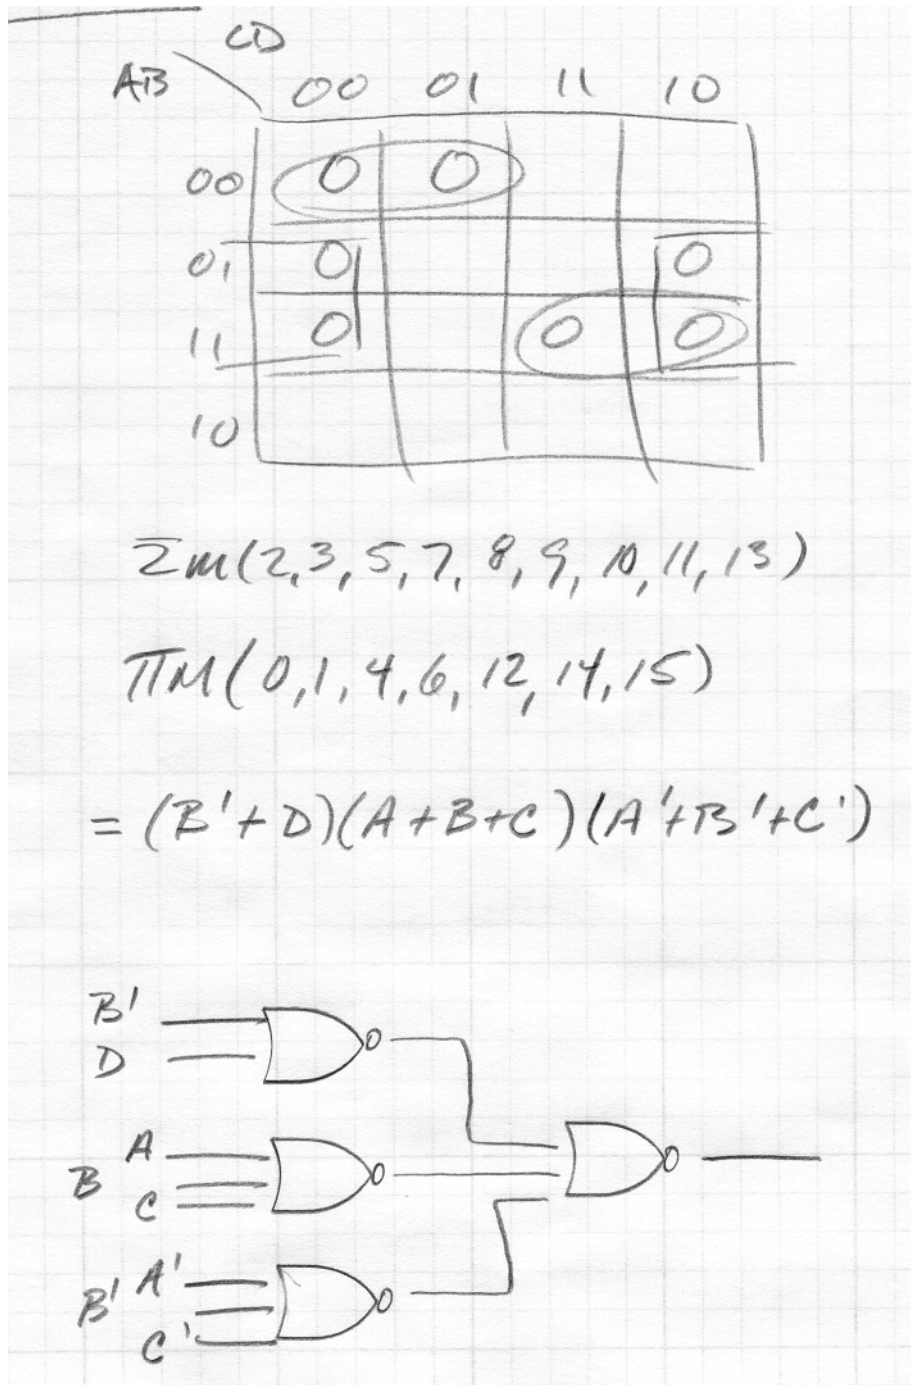 CD
AB 00 01 11 10
00 0 0
01 0 0
11 0 0 0
10
Σm(2,3,5,7,8,9,10,11,13)
ΠM(0,1,4,6,12,14,15)
= (B'+D)(A+B+C)(A'+B'+C')
B'
D
A
B
C
A'
B'
C'